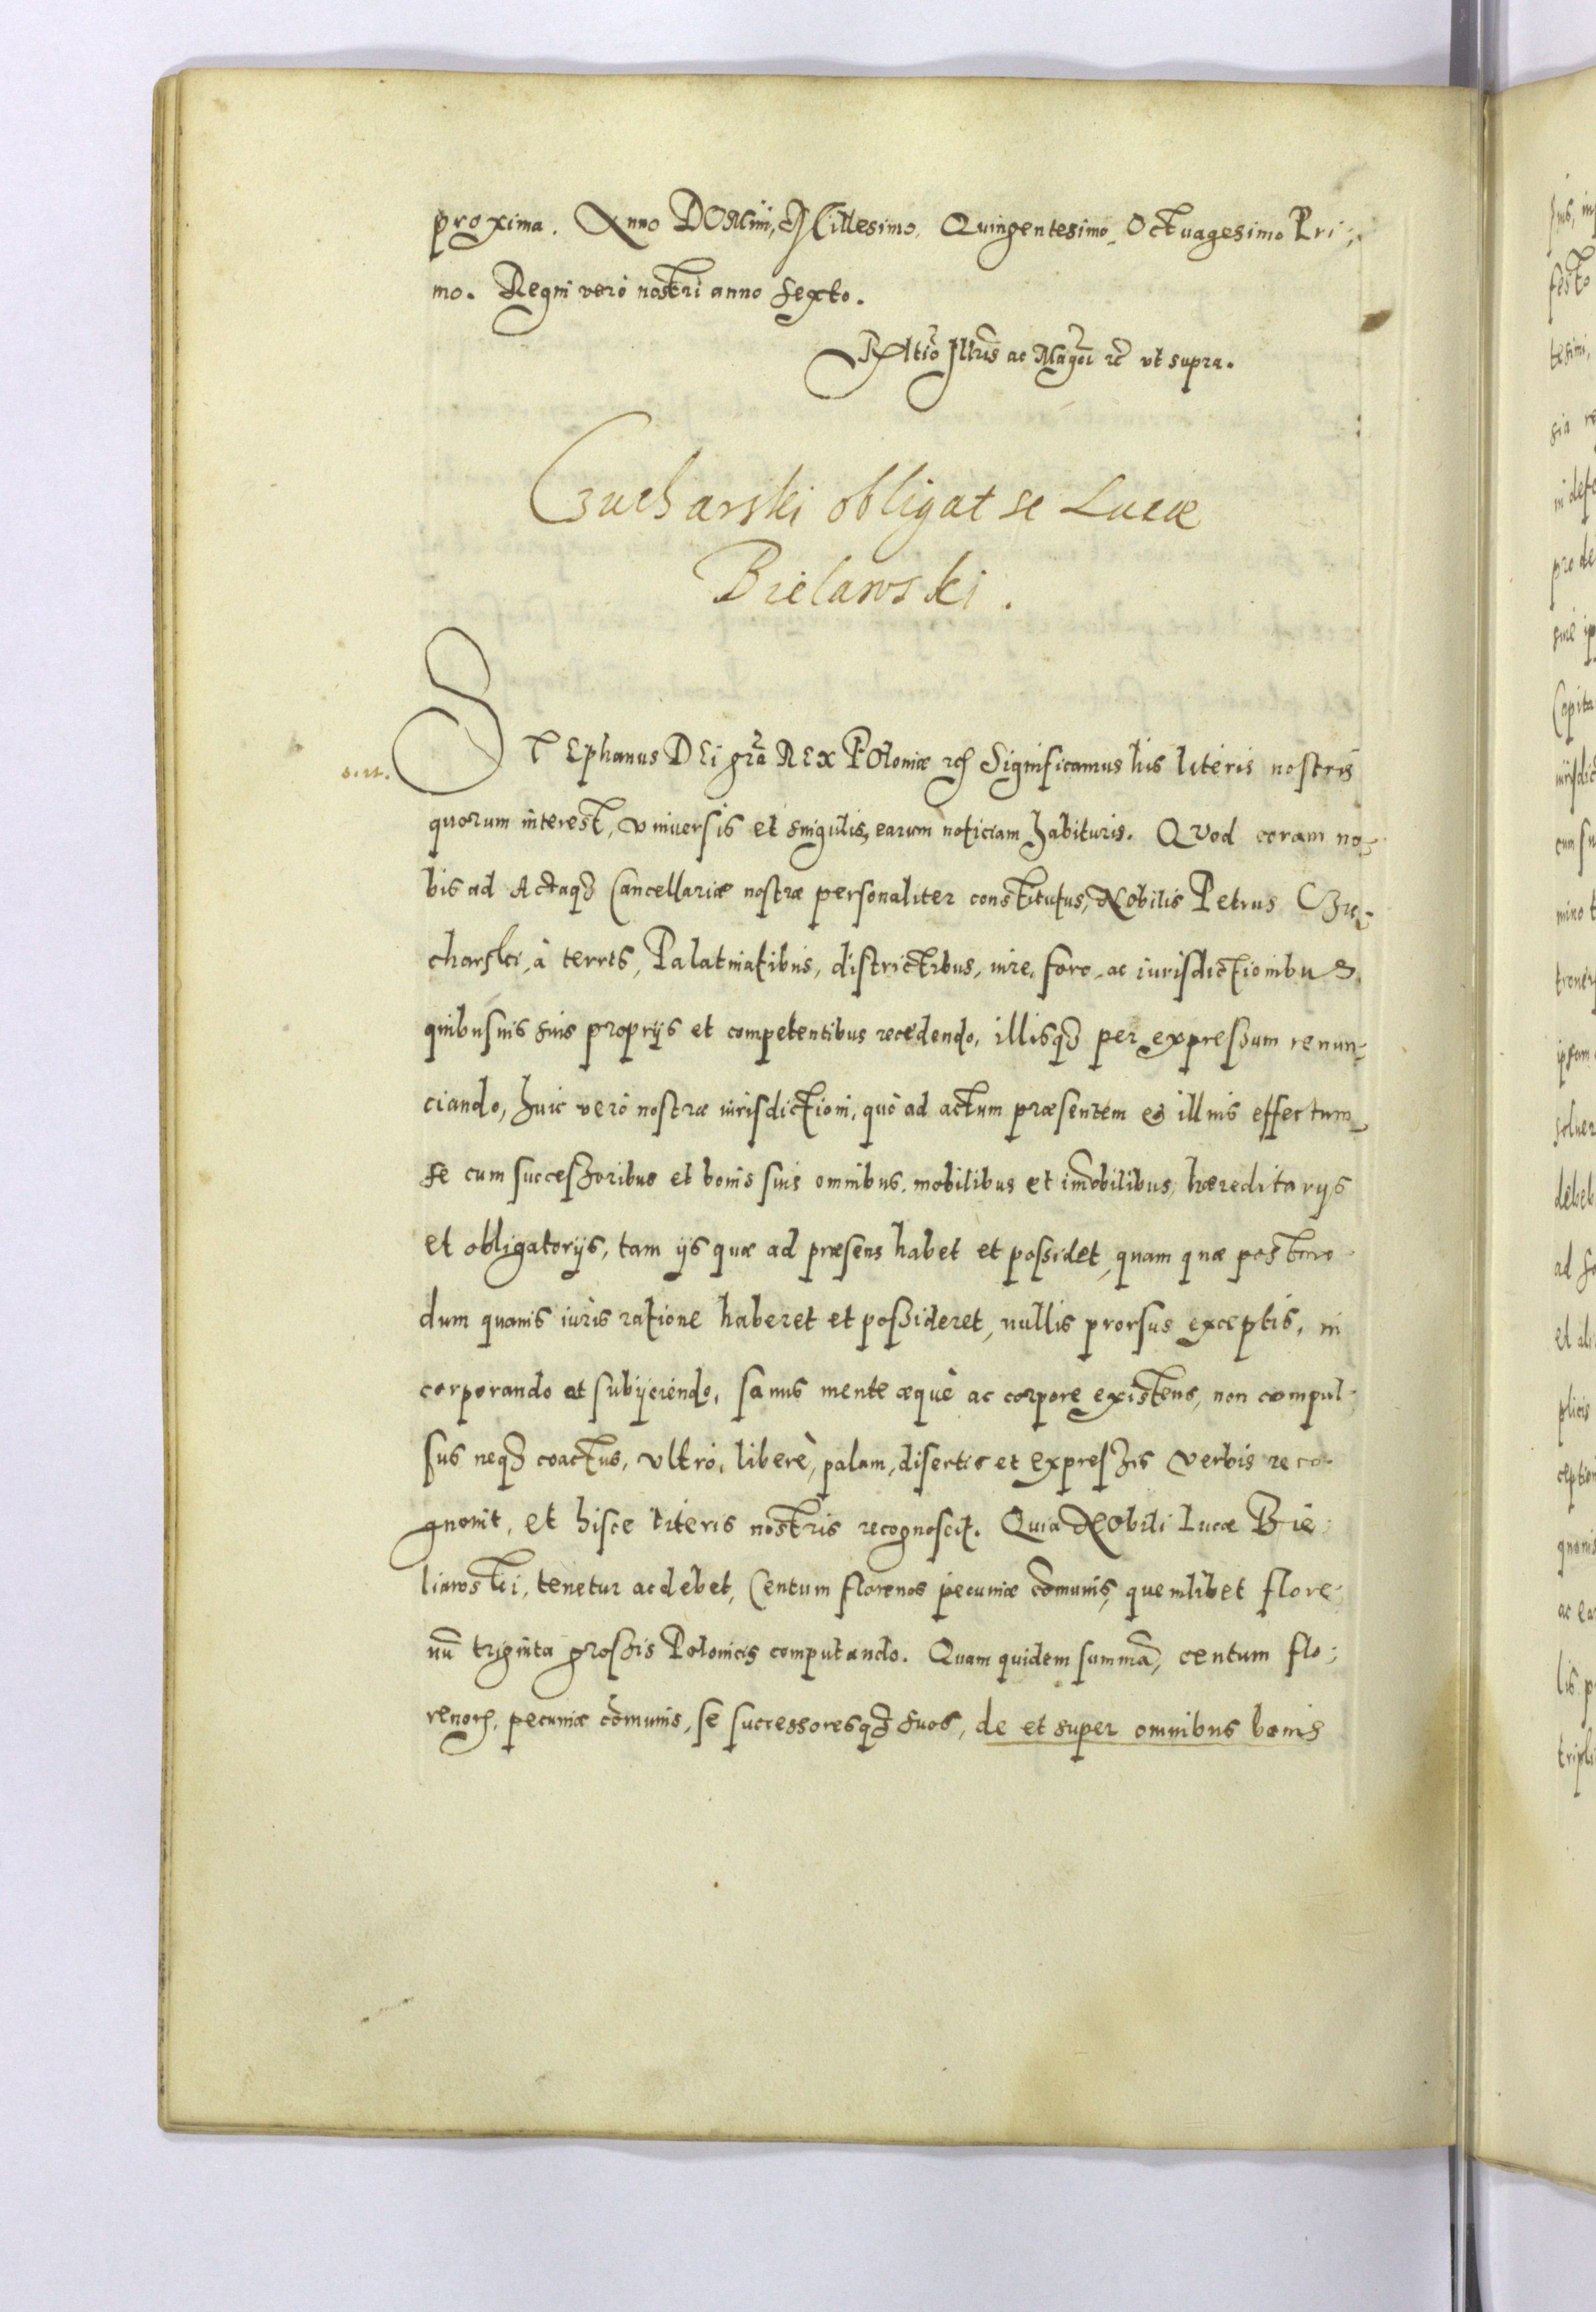 proxima. Anno DOMini, Millesimo, Quingentesimo, Octuagesimo Pri-
mo. Regni vero nostri anno sexto.
Rltio Illris ac Magci rc ut supra.
Czucharski obligat se Lucæ
Bielawski.
STEphanus DEi gra REX POloniæ rc Significamus his literis nostris
quorum interest, vniuersis et singulis, earum noticiam habituris. QVod coram no-
bis ad Actaq3 Cancellariæ nostræ personaliter constitutus, Nobilis Petrus Czu-
charski, à terris, Palatinatibus, districtibus, iure, foro, ac iurisdictionibus,
quibusuis suis proprijs et competentibus recedendo, illisq3 per expressum renun-
ciando, huic verò nostræ iurisdictioni, quò ad actum præsentem et illius effectum
se cum successoribus et bonis suis omnibus, mobilibus et imobilibus, hæreditarijs
et obligatorijs, tam ijs quæ ad præsens habet et possidet, quam quæ postmo-
dum quauis iuris ratione haberet et possideret, nullis prorsus exceptis, in
corporando et subijciendo, sanus mente æquè ac corpore existens, non compul-
sus neq3 coactus, vltrò, liberè, palam, disertis et expressis verbis reco-
gnouit, et hisce literis nostris recognoscit. Quia NObili Lucæ Bie-
liawski, tenetur ac debet, Centum florenos pecuniæ comunis, quemlibet flore-
nu triginta grossis Polonicis computando. Quam quidem summa, centum flo-
renor, pecuniæ comunis, se successoresq3 suos, de et super omnibus bonis